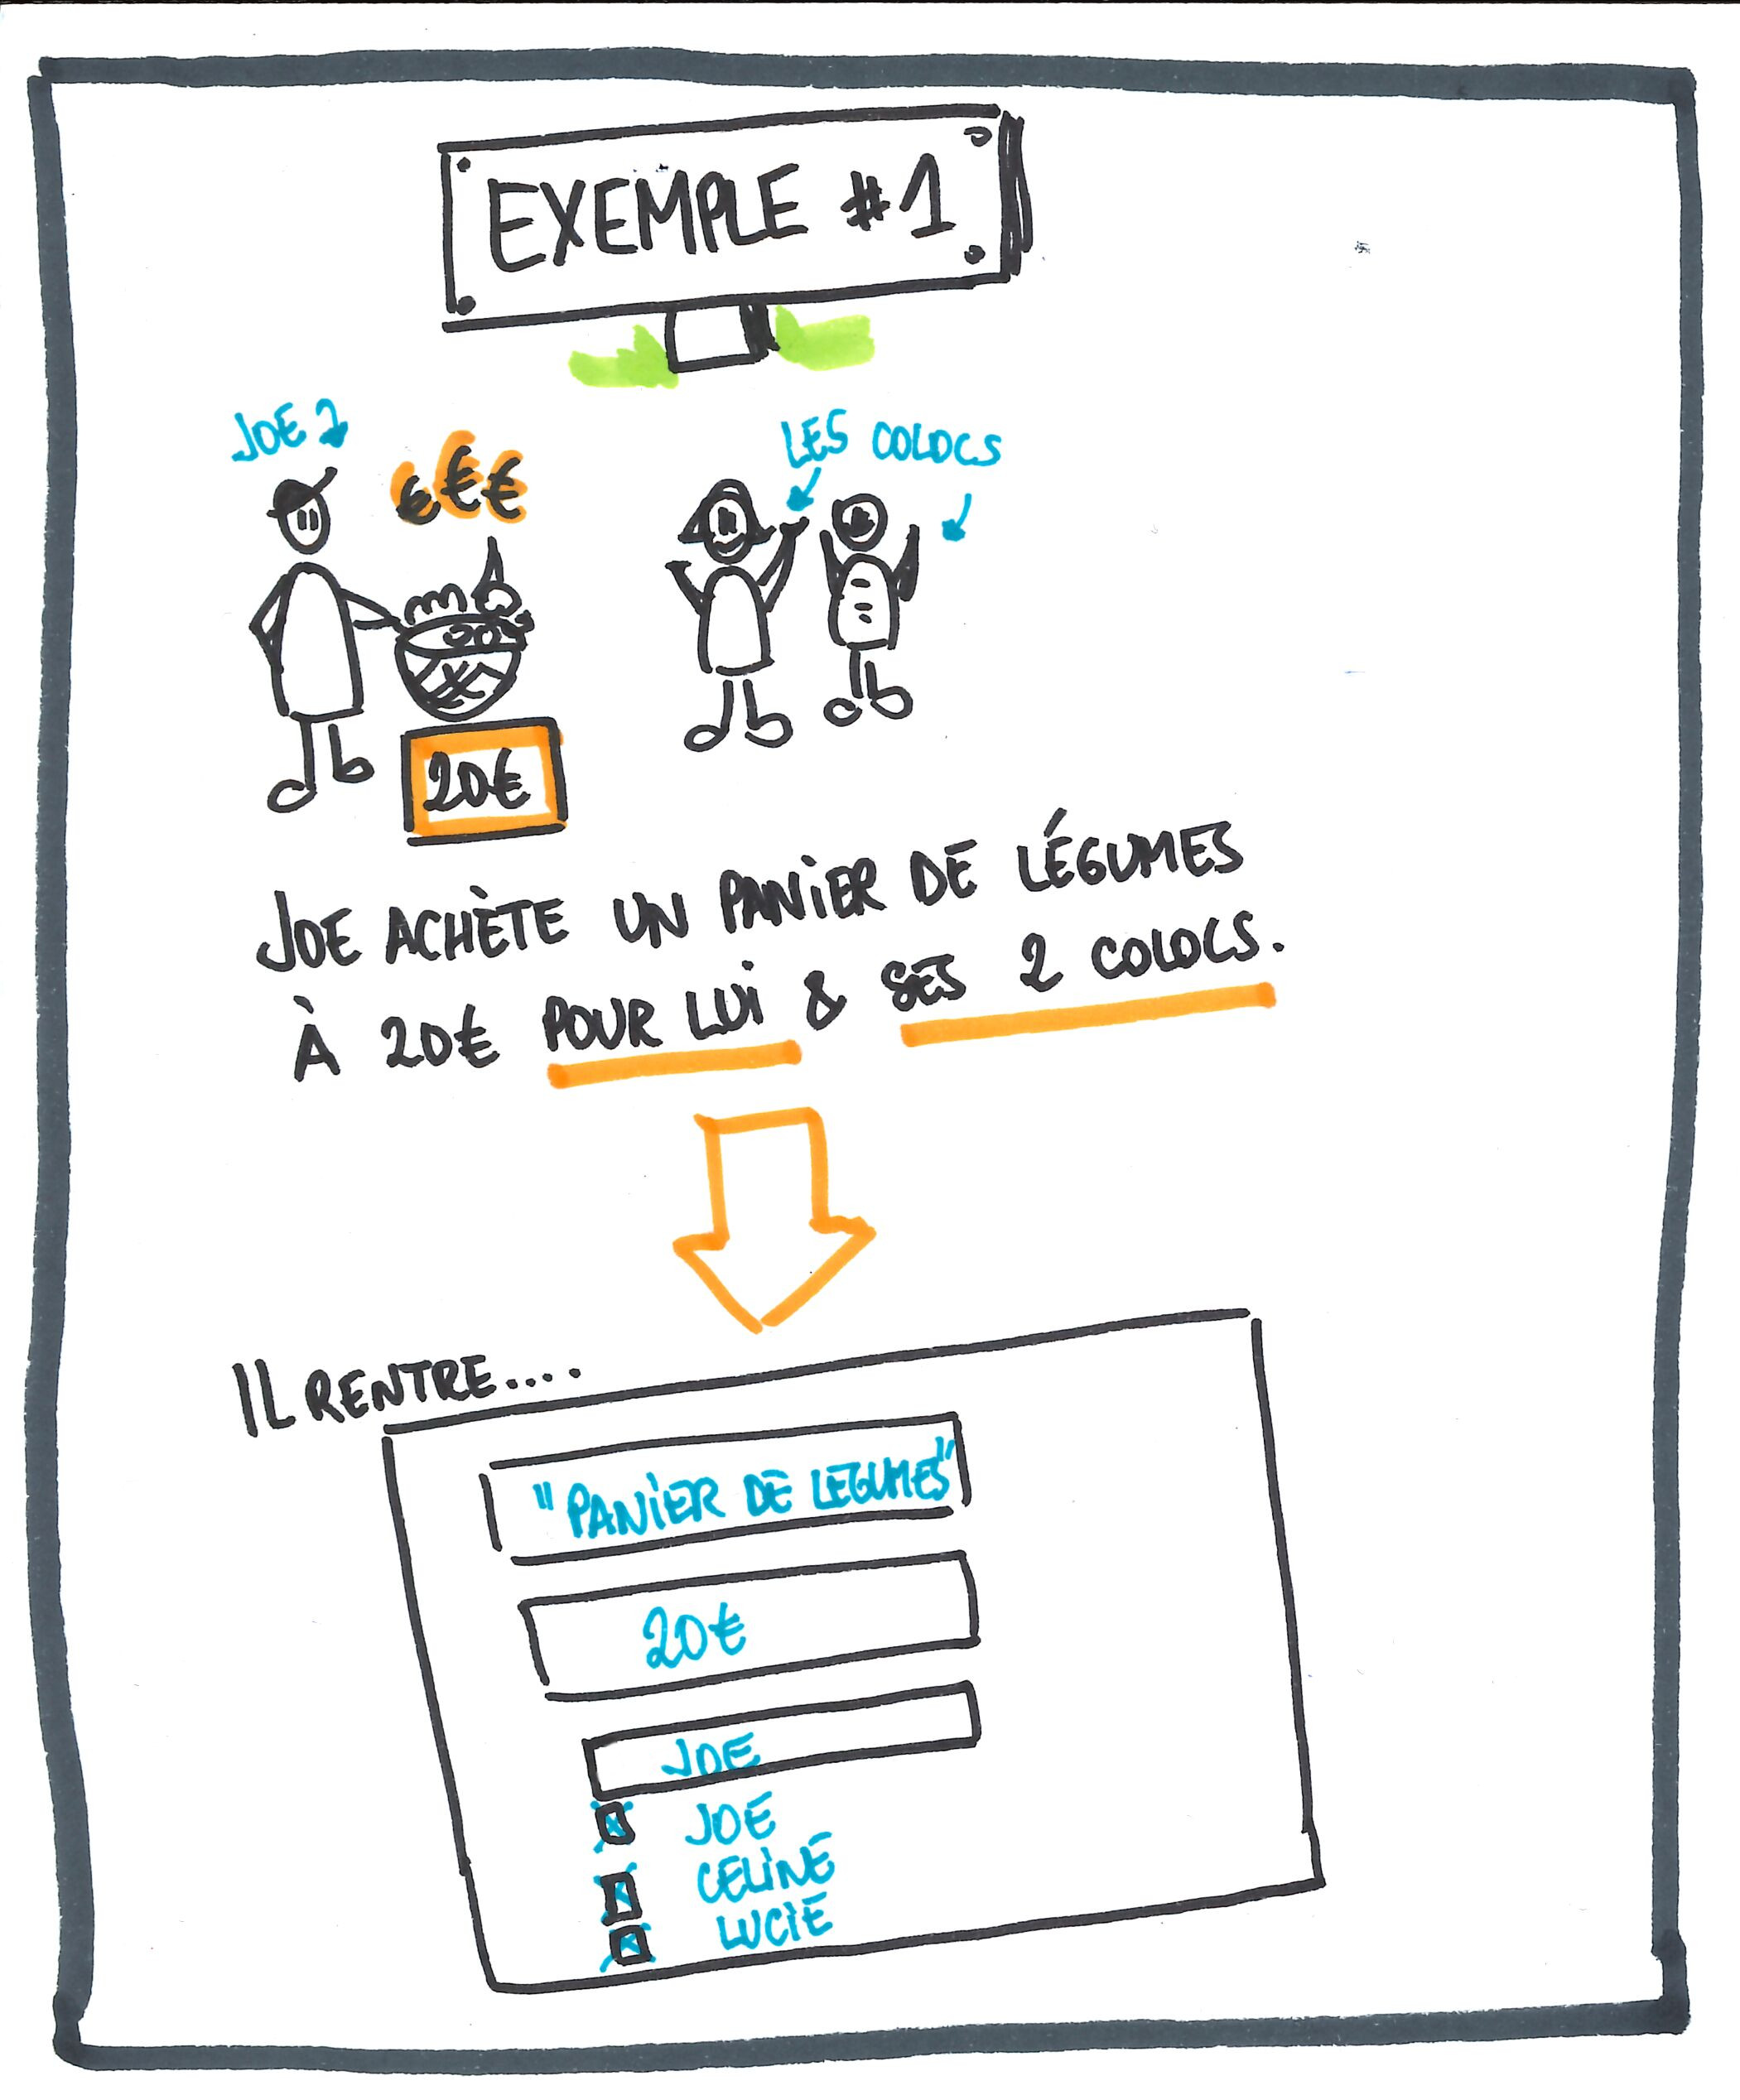 EXEMPLE #1
JOE
LES COLOCS
€€€
20€
JOE ACHÈTE UN PANIER DE LÉGUMES
À 20€ POUR LUI & SES 2 COLOCS.
IL RENTRE....
"PANIER DE LEGUMES"
20€
JOE
JOE
CELINE
LUCIE